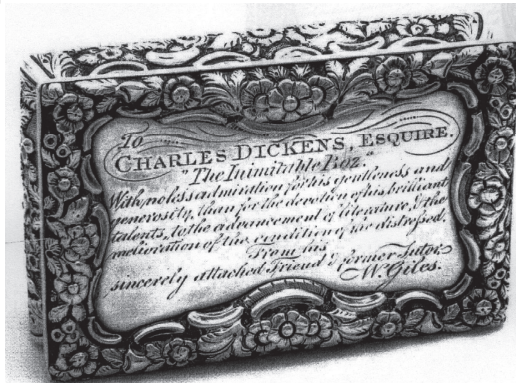 To
CHARLES DICKENS, ESQUIRE.
"The Inimitable Boz."
With no less admiration for his gentleness and
generosity, than for the devotion of his brilliant
talents, to the advancement of literature, & the
melioration of the condition of the distressed,
From his
sincerely attached Friend & former Tutor
W. Giles.